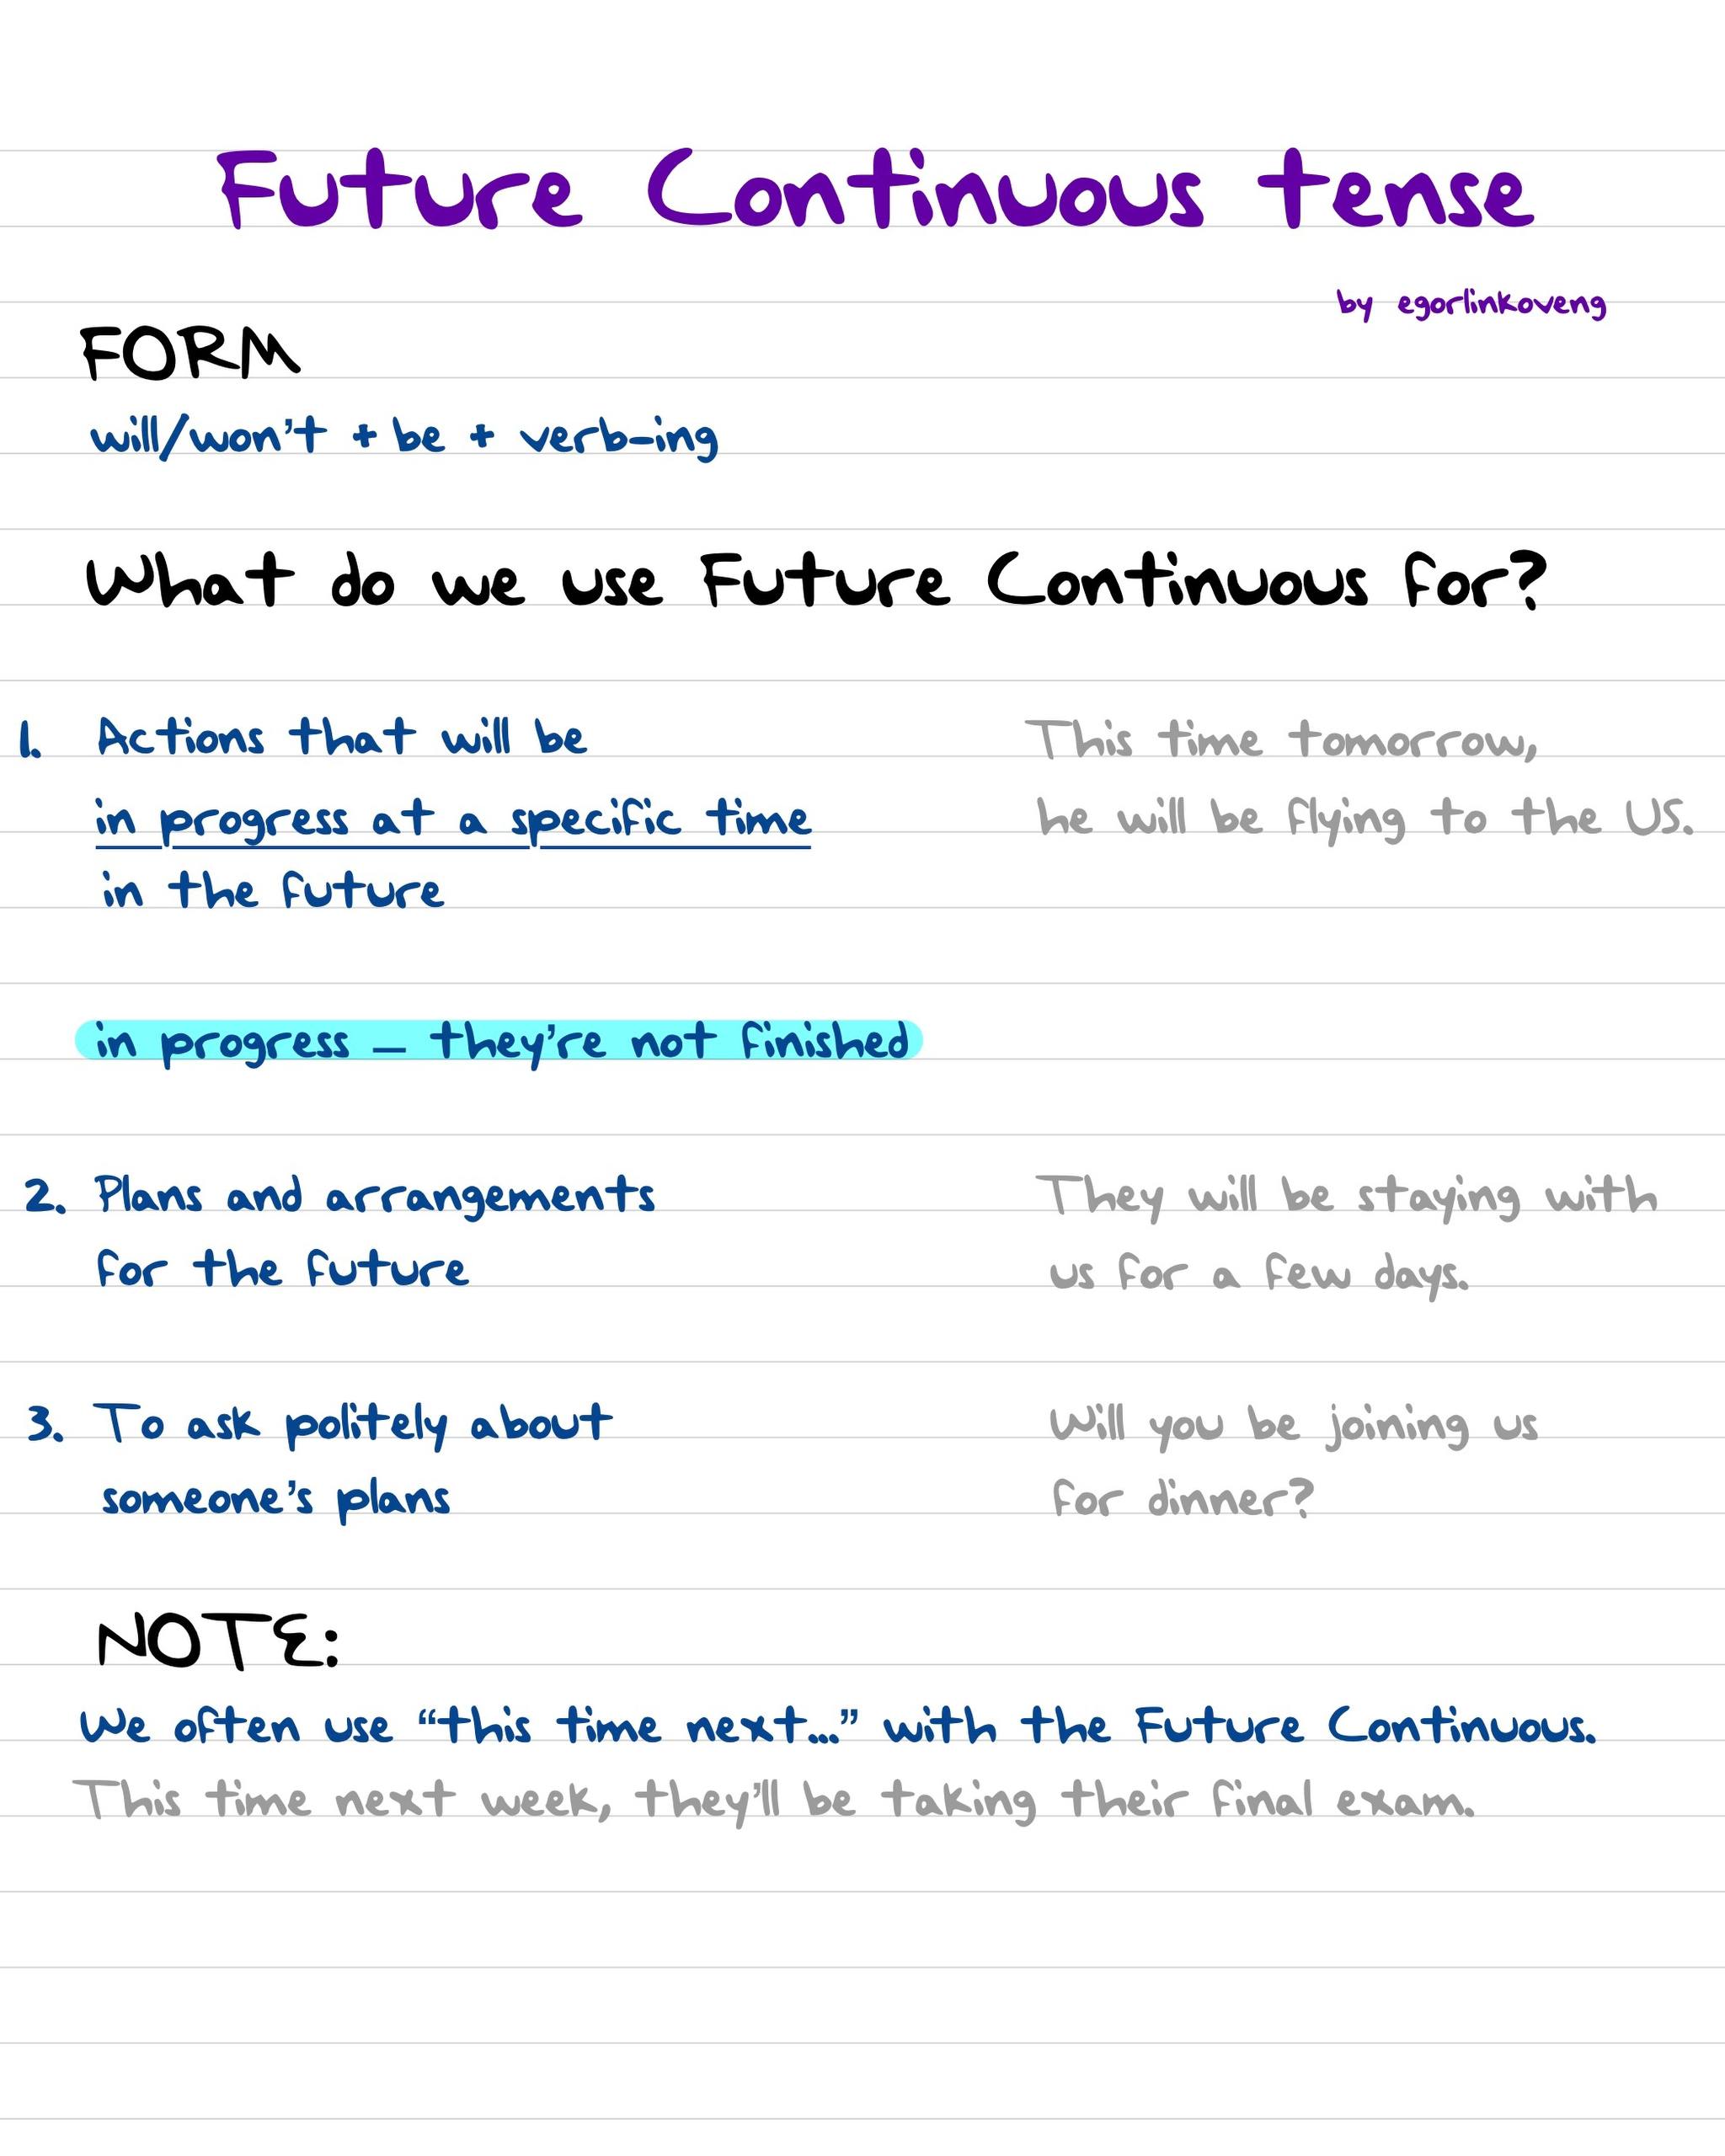 Future Continuous tense
by egorlinkoveng
FORM
will/won't + be + verb-ing
What do we use Future Continuous for?
1. Actions that will be
in progress at a specific time
in the future
This time tomorrow,
he will be flying to the US.
in progress – they're not finished
2. Plans and arrangements
for the future
They will be staying with
us for a few days.
3. To ask politely about
someone's plans
Will you be joining us
for dinner?
NOTE:
We often use “this time next...” with the Future Continuous.
This time next week, they'll be taking their final exam.